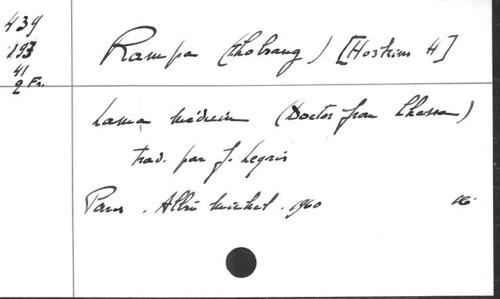 439
193
41
2 Fr.
Rampa (Lhobsang) [Hoskins H]
Lama médecin (Doctor from Lhassa)
trad. par J. Legris
Paris. Albin Michel. 1960